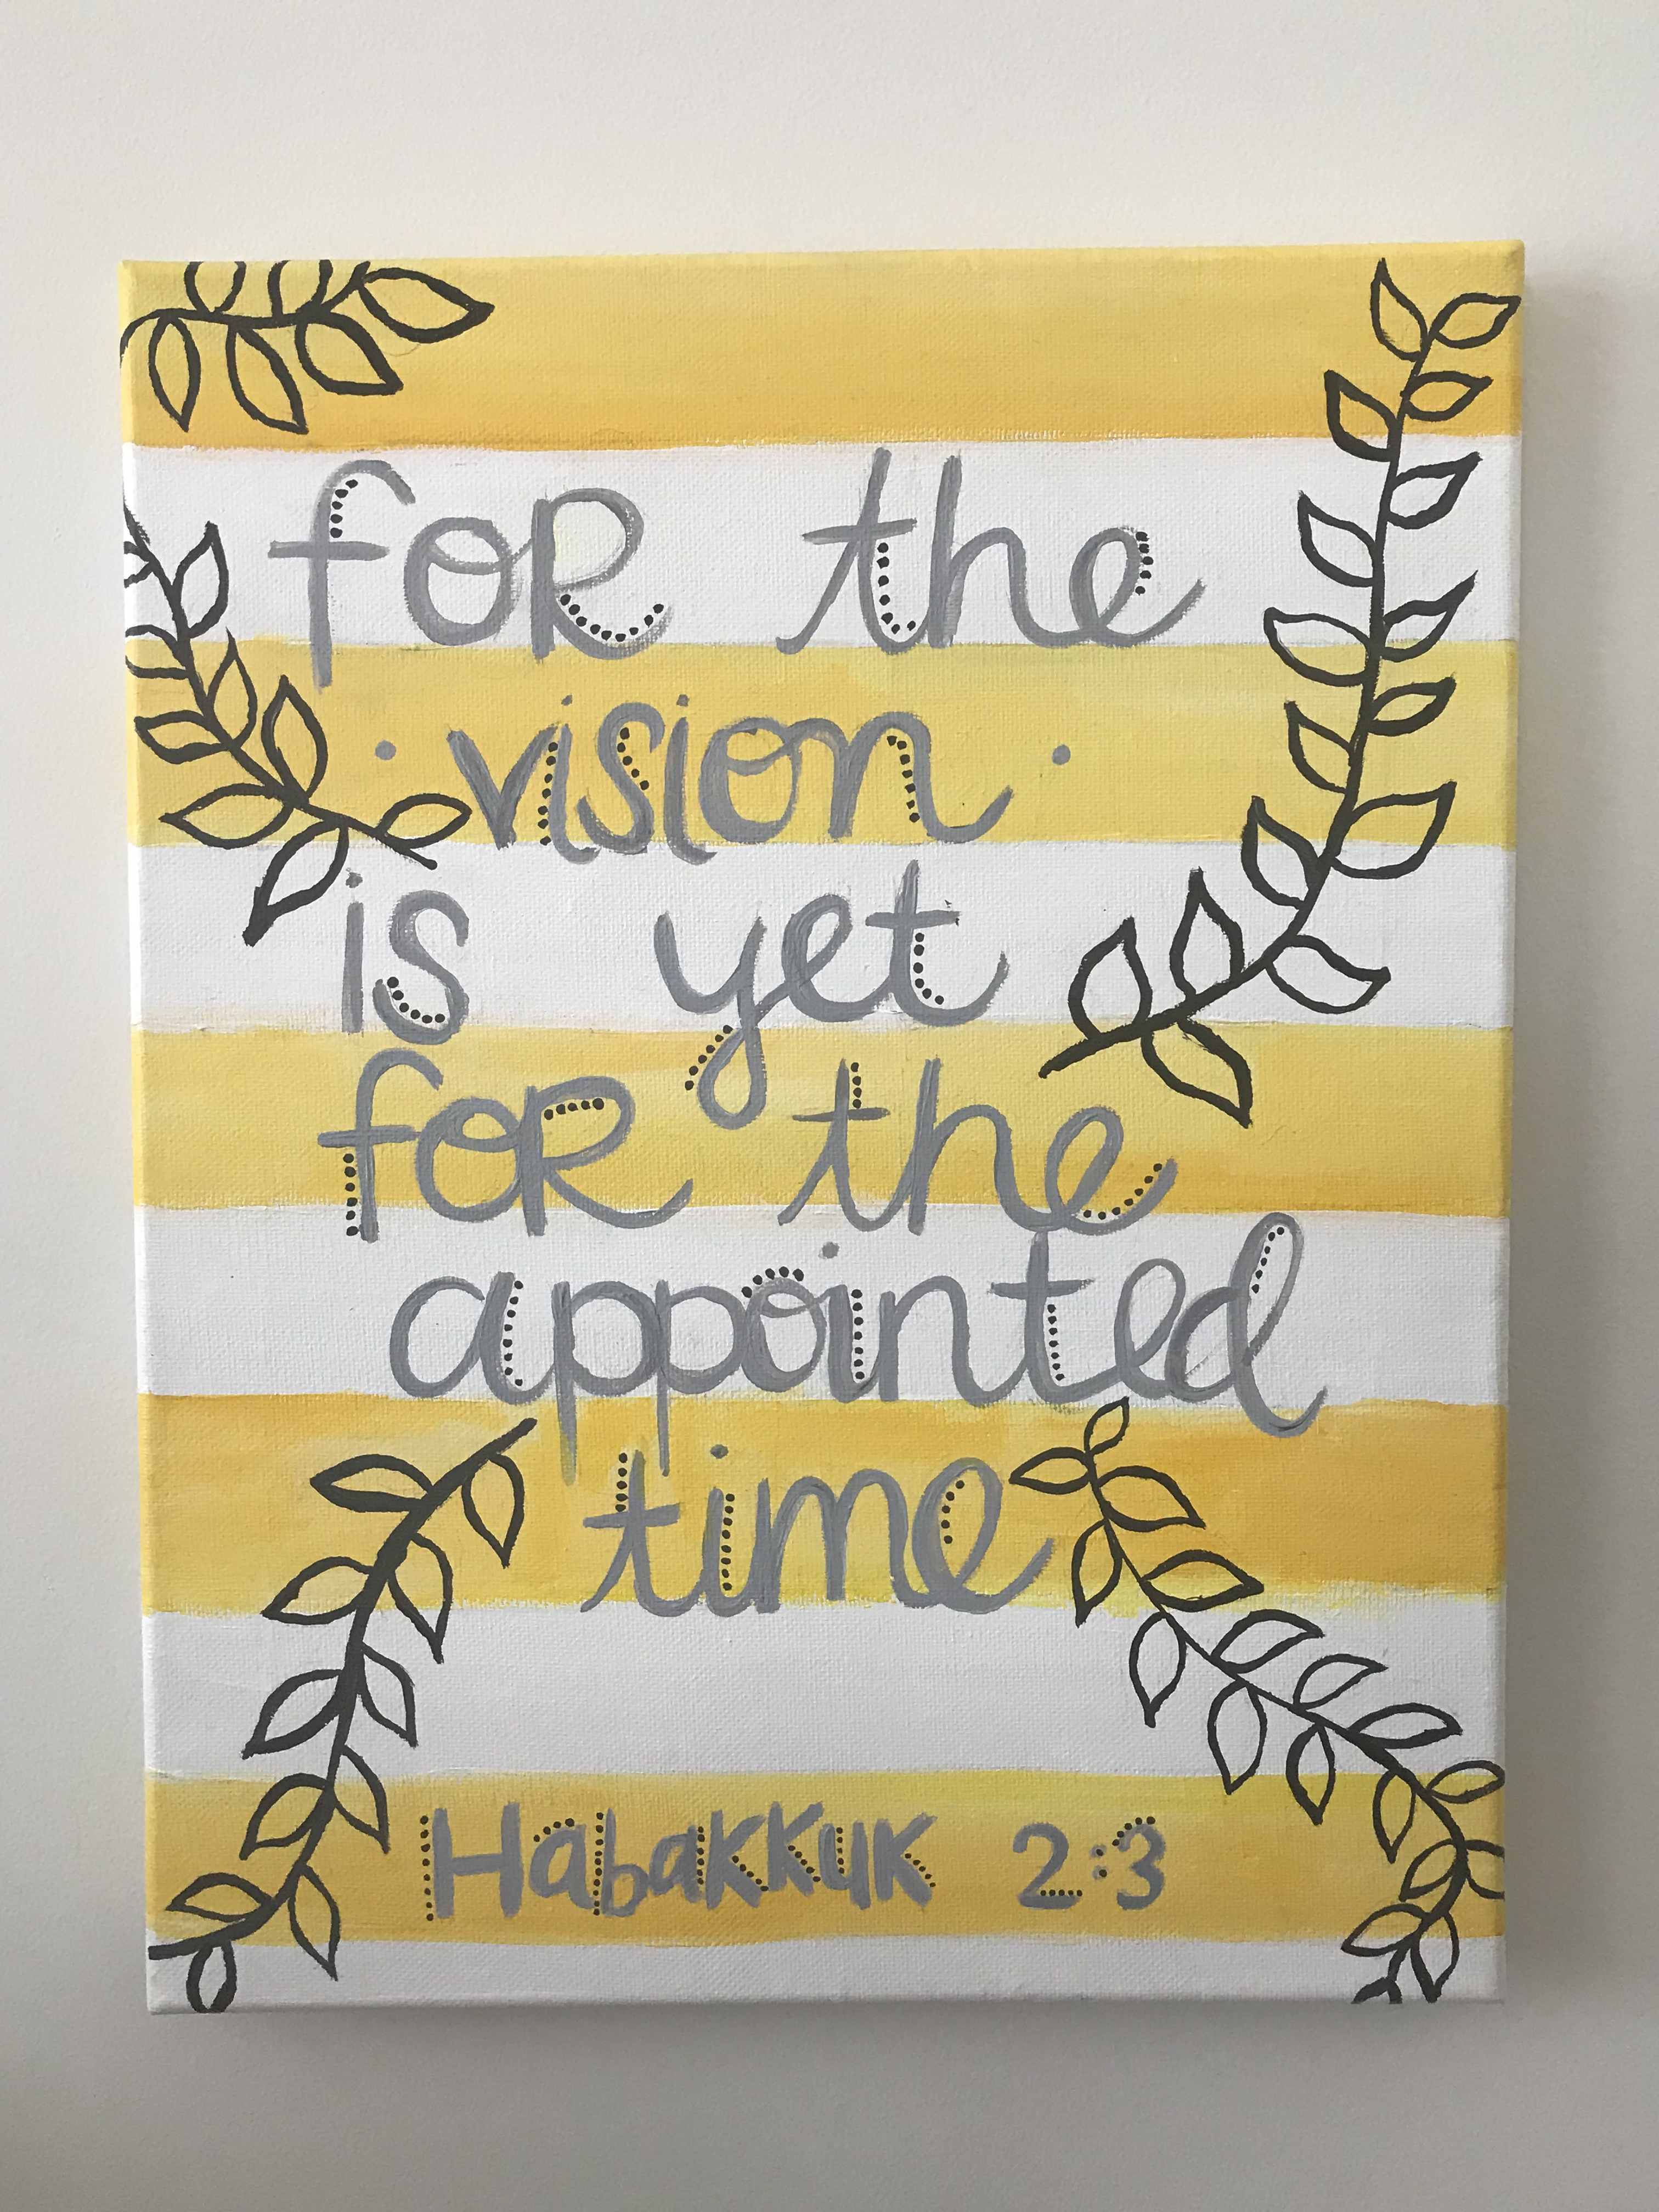 for the
· vision ·
is yet
for the
appointed
time
Habakkuk 2:3